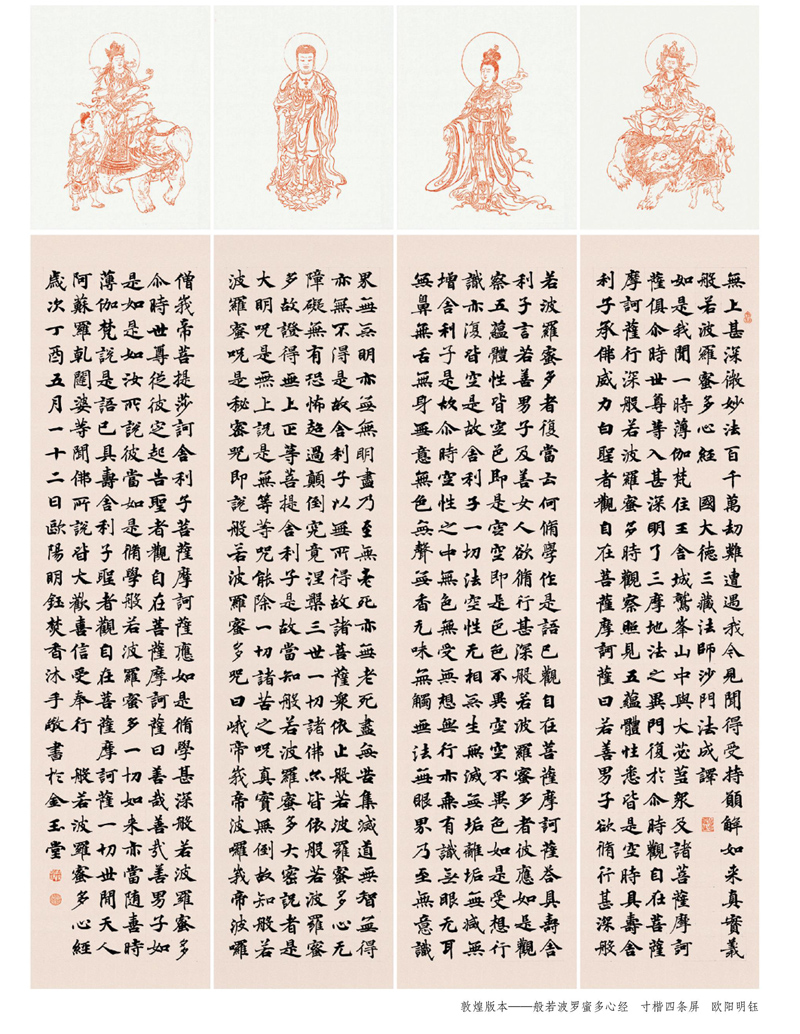 無上甚深微妙法百千萬劫難遭遇我今見聞得受持願解如来真實義
般若波羅蜜多心經　國大德三藏法師沙門法成譯
如是我聞一時薄伽梵住王舍城鷲峯山中與大苾蒭衆及諸菩薩摩訶
薩俱尒時世尊等入甚深明了三摩地法之異門復於尒時觀自在菩薩
摩訶薩行深般若波羅蜜多時觀察照見五蘊體性悉皆是空時具壽舍
利子承佛威力白聖者觀自在菩薩摩訶薩曰若善男子欲脩行甚深般
若波羅蜜多者復當云何脩學作是語已觀自在菩薩摩訶薩荅具壽舍
利子言若善男子及善女人欲脩行甚深般若波羅蜜多者彼應如是觀
察五蘊體性皆空色即是空空即是色色不異空空不異色如是受想行
識亦復皆空是故舍利子一切法空性无相無生無滅無垢離垢無減無
增舍利子是故尒時空性之中無色無受無想無行亦無有識無眼无耳
無鼻無舌無身無意無色無聲無香无味無觸無法無眼界乃至無意識
界無無明亦無無明盡乃至無老死亦無老死盡無苦集滅道無智無得
亦無不得是故舍利子以無所得故諸菩薩衆依止般若波羅蜜多心无
障礙無有恐怖超過顛倒究竟涅槃三世一切諸佛亦皆依般若波羅蜜
多故證得無上正等菩提舍利子是故當知般若波羅蜜多大密說者是
大明呪是無上說是無等等呪能除一切諸苦之呪真實無倒故知般若
波羅蜜呪是秘密呪即說般若波羅蜜多呪曰峨帝峩帝波囉峩帝波囉
僧峩帝菩提莎訶舍利子菩薩摩訶薩應如是脩學甚深般若波羅蜜多
尒時世尊從彼定起告聖者觀自在菩薩摩訶薩曰善哉善哉善男子如
是如是如汝所說彼當如是脩學般若波羅蜜多一切如来亦當随喜時
薄伽梵說是語已具壽舍利子聖者觀自在菩薩摩訶薩一切世間天人
阿蘇羅乹闥婆等聞佛所說皆大歡喜信受奉行　般若波羅蜜多心經
歲次丁酉五月一十二日歐陽明鈺焚香沐手敬書於金玉堂
敦煌版本——般若波罗蜜多心经　寸楷四条屏　欧阳明钰